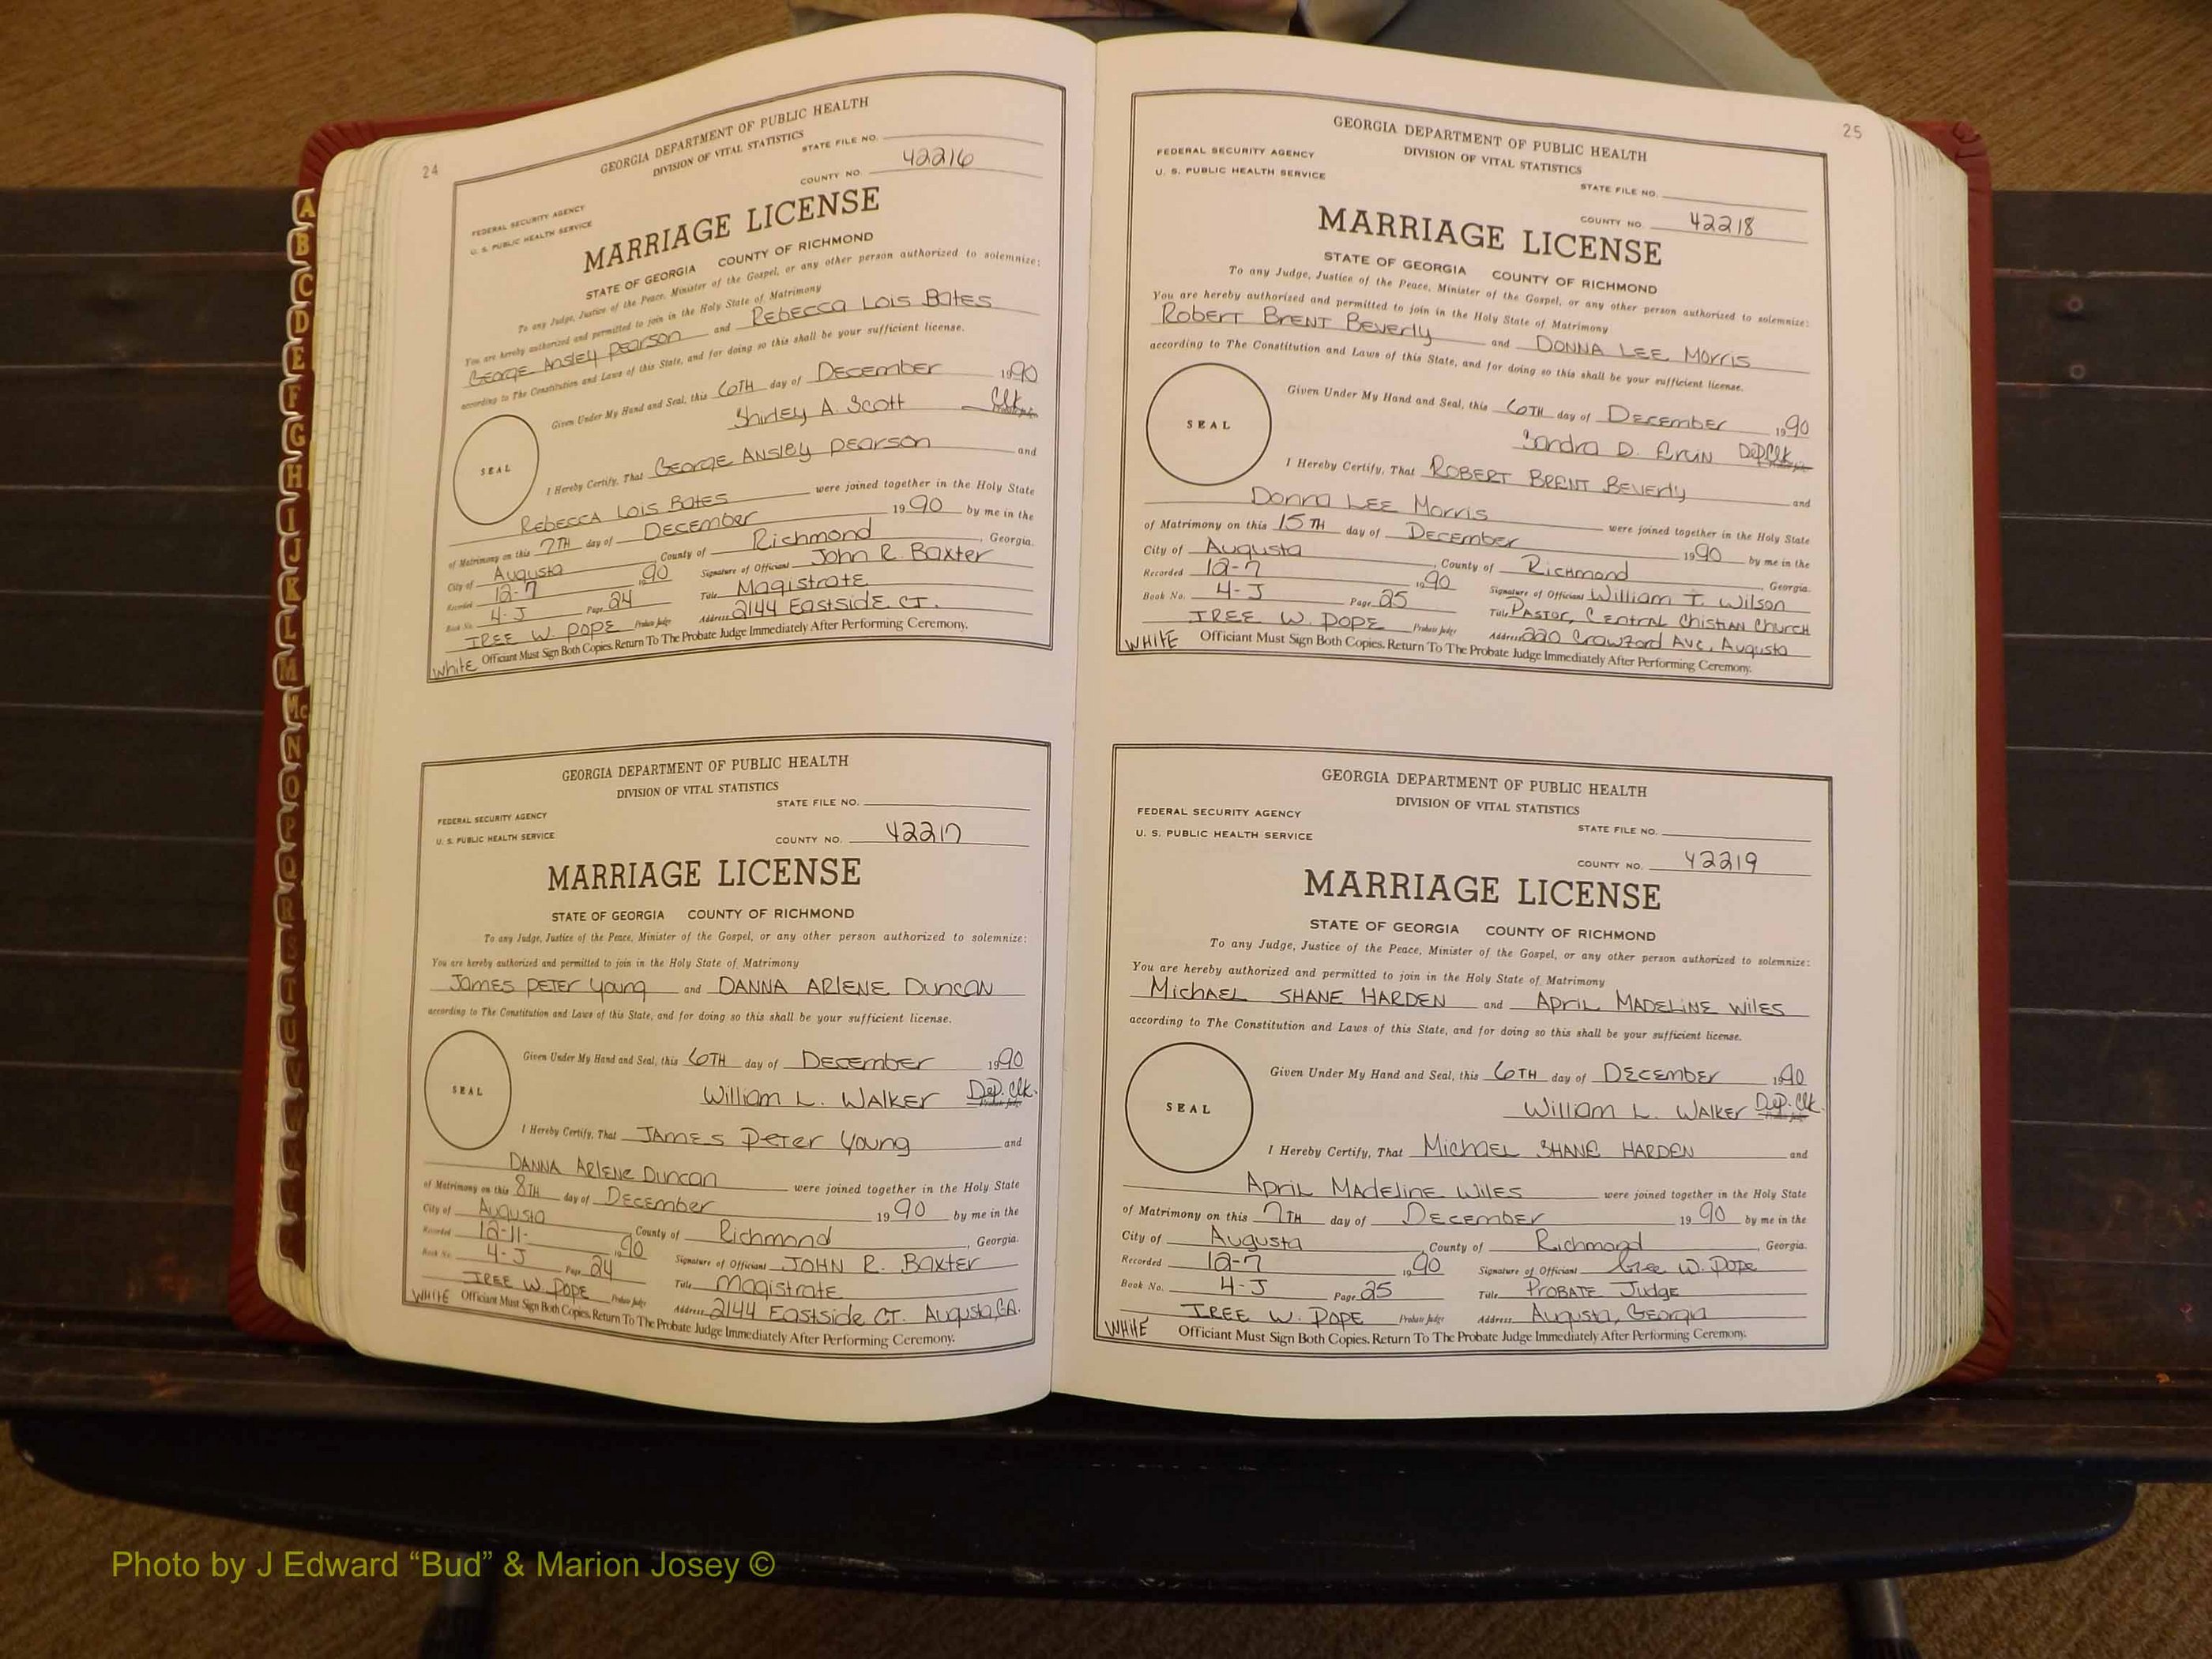 24
GEORGIA DEPARTMENT OF PUBLIC HEALTH
DIVISION OF VITAL STATISTICS
STATE FILE NO.
FEDERAL SECURITY AGENCY
U. S. PUBLIC HEALTH SERVICE
COUNTY NO. 42216
MARRIAGE LICENSE
STATE OF GEORGIA COUNTY OF RICHMOND
To any Judge, Justice of the Peace, Minister of the Gospel, or any other person authorized to solemnize:
You are hereby authorized and permitted to join in the Holy State of Matrimony
George Ansley Pearson and Rebecca Lois Bates
according to The Constitution and Laws of this State, and for doing so this shall be your sufficient license.
Given Under My Hand and Seal, this 6TH day of December 1990
Shirley A. Scott Clk
SEAL
I Hereby Certify, That George Ansley Pearson and
Rebecca Lois Bates were joined together in the Holy State
of Matrimony on this 7TH day of December 1990 by me in the
City of Augusta County of Richmond, Georgia.
Recorded 12-7 1990 Signature of Officiant John R. Baxter
Book No. 4-J Page 24 Title Magistrate
IREE W. POPE Probate Judge Address 2144 Eastside CT.
White Officiant Must Sign Both Copies. Return To The Probate Judge Immediately After Performing Ceremony.
GEORGIA DEPARTMENT OF PUBLIC HEALTH
DIVISION OF VITAL STATISTICS
STATE FILE NO.
FEDERAL SECURITY AGENCY
U. S. PUBLIC HEALTH SERVICE
COUNTY NO. 42217
MARRIAGE LICENSE
STATE OF GEORGIA COUNTY OF RICHMOND
To any Judge, Justice of the Peace, Minister of the Gospel, or any other person authorized to solemnize:
You are hereby authorized and permitted to join in the Holy State of Matrimony
James Peter Young and DANNA ARLENE DUNCAN
according to The Constitution and Laws of this State, and for doing so this shall be your sufficient license.
Given Under My Hand and Seal, this 6TH day of December 1990
William L. Walker Dep. Clk.
SEAL
I Hereby Certify, That James Peter Young and
DANNA Arlene Duncan were joined together in the Holy State
of Matrimony on this 8TH day of December 1990 by me in the
City of Augusta County of Richmond, Georgia.
Recorded 12-11- 1990 Signature of Officiant JOHN R. Baxter
Book No. 4-J Page 24 Title Magistrate
IREE W. POPE Probate Judge Address 2144 Eastside CT. Augusta, GA.
WHITE Officiant Must Sign Both Copies. Return To The Probate Judge Immediately After Performing Ceremony.
25
GEORGIA DEPARTMENT OF PUBLIC HEALTH
DIVISION OF VITAL STATISTICS
FEDERAL SECURITY AGENCY
U. S. PUBLIC HEALTH SERVICE
STATE FILE NO.
COUNTY NO. 42218
MARRIAGE LICENSE
STATE OF GEORGIA COUNTY OF RICHMOND
To any Judge, Justice of the Peace, Minister of the Gospel, or any other person authorized to solemnize:
You are hereby authorized and permitted to join in the Holy State of Matrimony
Robert Brent Beverly and DONNA LEE Morris
according to The Constitution and Laws of this State, and for doing so this shall be your sufficient license.
Given Under My Hand and Seal, this 6TH day of December 1990
SEAL
Sandra D. Ervin Dep Clk
I Hereby Certify, That ROBERT BRENT BEVERLY and
Donna LEE Morris were joined together in the Holy State
of Matrimony on this 15TH day of December 1990 by me in the
City of Augusta, County of Richmond, Georgia.
Recorded 12-7 1990 Signature of Officiant William T. Wilson
Book No. 4-J Page 25 Title PASTOR, CENTRAL Chistian Church
IREE W. POPE Probate Judge Address 220 Crawford Ave, Augusta
WHITE Officiant Must Sign Both Copies. Return To The Probate Judge Immediately After Performing Ceremony.
GEORGIA DEPARTMENT OF PUBLIC HEALTH
DIVISION OF VITAL STATISTICS
FEDERAL SECURITY AGENCY
U. S. PUBLIC HEALTH SERVICE
STATE FILE NO.
COUNTY NO. 42219
MARRIAGE LICENSE
STATE OF GEORGIA COUNTY OF RICHMOND
To any Judge, Justice of the Peace, Minister of the Gospel, or any other person authorized to solemnize:
You are hereby authorized and permitted to join in the Holy State of Matrimony
Michael SHANE HARDEN and April MADELINE Wiles
according to The Constitution and Laws of this State, and for doing so this shall be your sufficient license.
Given Under My Hand and Seal, this 6TH day of December 1990
SEAL
William L. Walker Dep. Clk.
I Hereby Certify, That Michael SHANE HARDEN and
April Madeline Wiles were joined together in the Holy State
of Matrimony on this 7TH day of December 1990 by me in the
City of Augusta, County of Richmond, Georgia.
Recorded 12-7 1990 Signature of Officiant Iree W. Pope
Book No. 4-J Page 25 Title PROBATE Judge
IREE W. POPE Probate Judge Address Augusta, Georgia
WHITE Officiant Must Sign Both Copies. Return To The Probate Judge Immediately After Performing Ceremony.
A
B
C
D
E
F
G
H
I
J
K
L
M
Mc
N
O
P
Q
R
S
T
U
V
Photo by J Edward “Bud” & Marion Josey ©